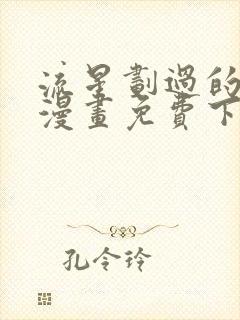 流星劃過的
漫畫免費下
孔令玲